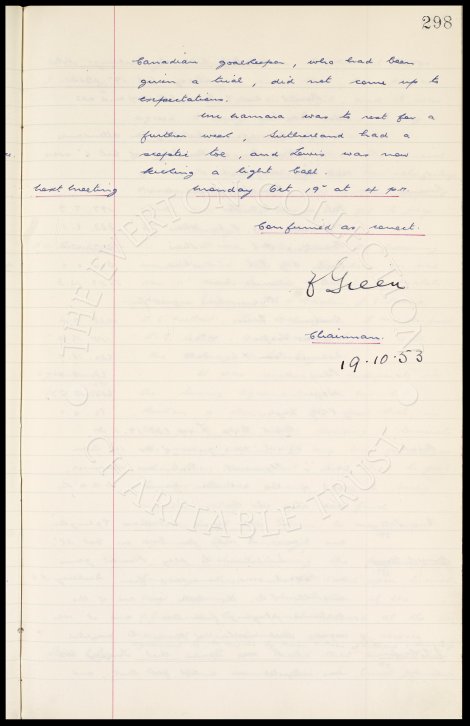 298
Canadian goalkeeper, who had been
given a trial, did not come up to
expectations.
McNamara was to rest for a
further week, Sutherland had a
sceptic toe, and Lewis was now
kicking a light ball.
Next Meeting Monday Oct 19th at 4 p.m.
Confirmed as correct.
Green
Chairman.
19.10.53
THE EVERTON COLLECTION
CHARITABLE TRUST